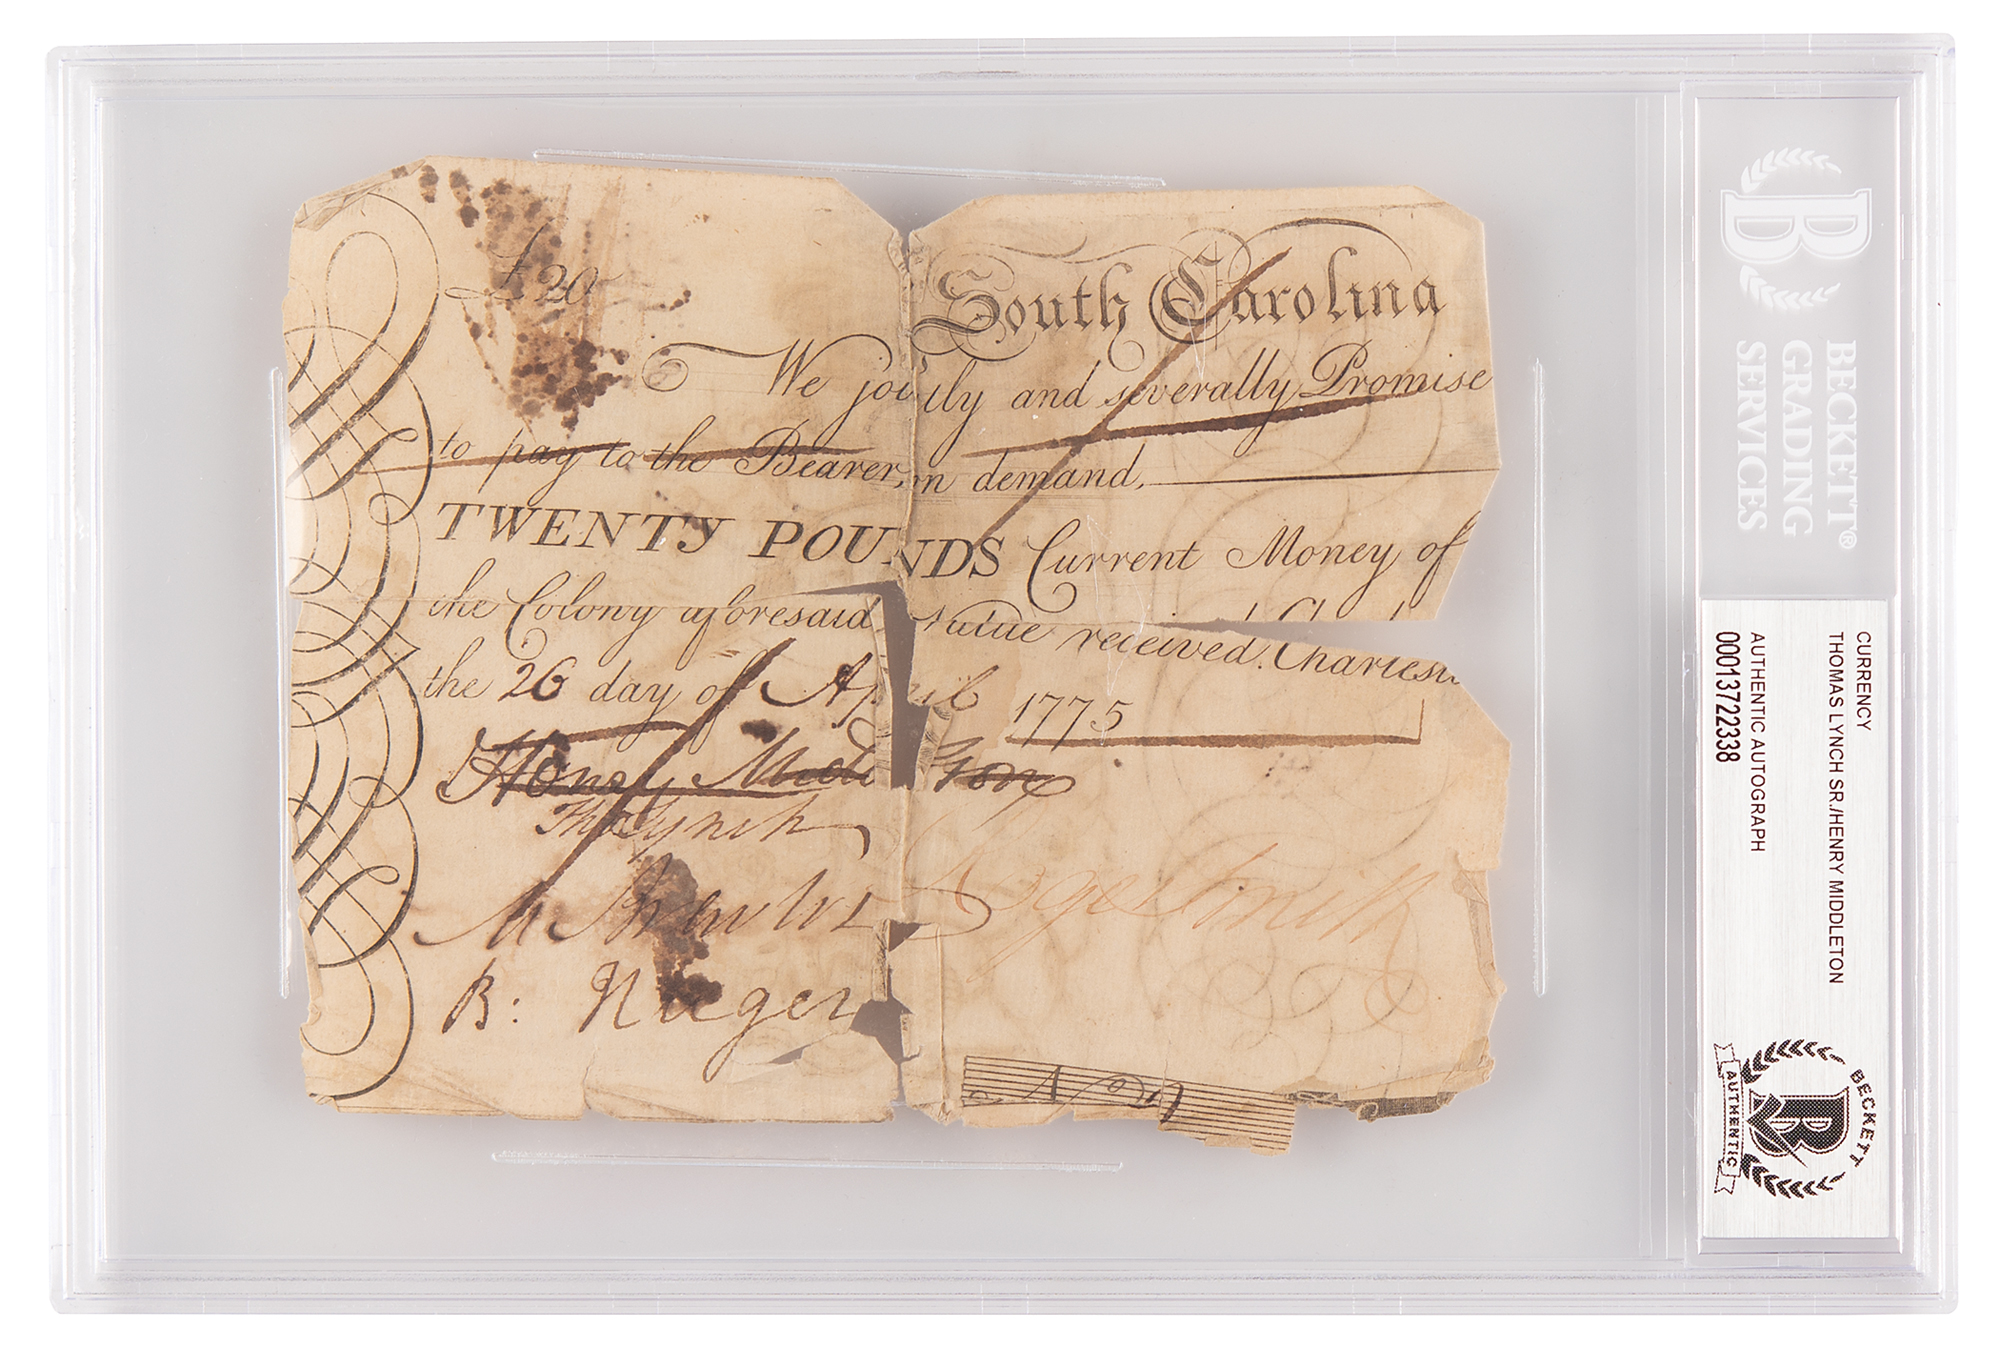 £ 20
South Carolina
We jointly and severally Promise
to pay to the Bearer, on demand,
TWENTY POUNDS Current Money of
the Colony aforesaid Value received. Charlesto
the 26 day of April 1775
Henry Middleton
Tho Lynch
Roger Smith
M Brewton
B: Huger
BECKETT®
GRADING
SERVICES
CURRENCY
THOMAS LYNCH SR./HENRY MIDDLETON
AUTHENTIC AUTOGRAPH
00013722338
BECKETT
AUTHENTIC